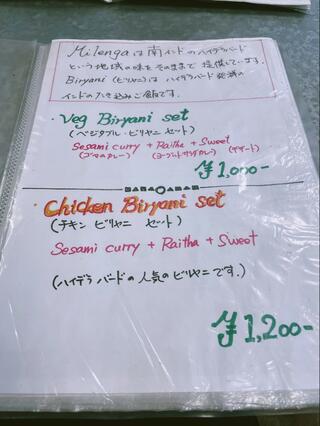 Milenga は南インドのハイデラバード
という地域の味をそのままで 提供しています.
Biryani (ビリヤニ)は ハイデラバード発祥の
インドのたき込みご飯です.
・Veg Biryani set
(ベジタブル・ビリヤニ セット)
Sesami curry + Raitha + Sweet
(ゴマのカレー) (ヨーグルトサラダカレー) (デザート)
¥1,000-
・Chicken Biryani set
(チキン ビリヤニ セット)
Sesami curry + Raitha + Sweet
(ハイデラバードの人気のビリヤニです.)
¥1,200-